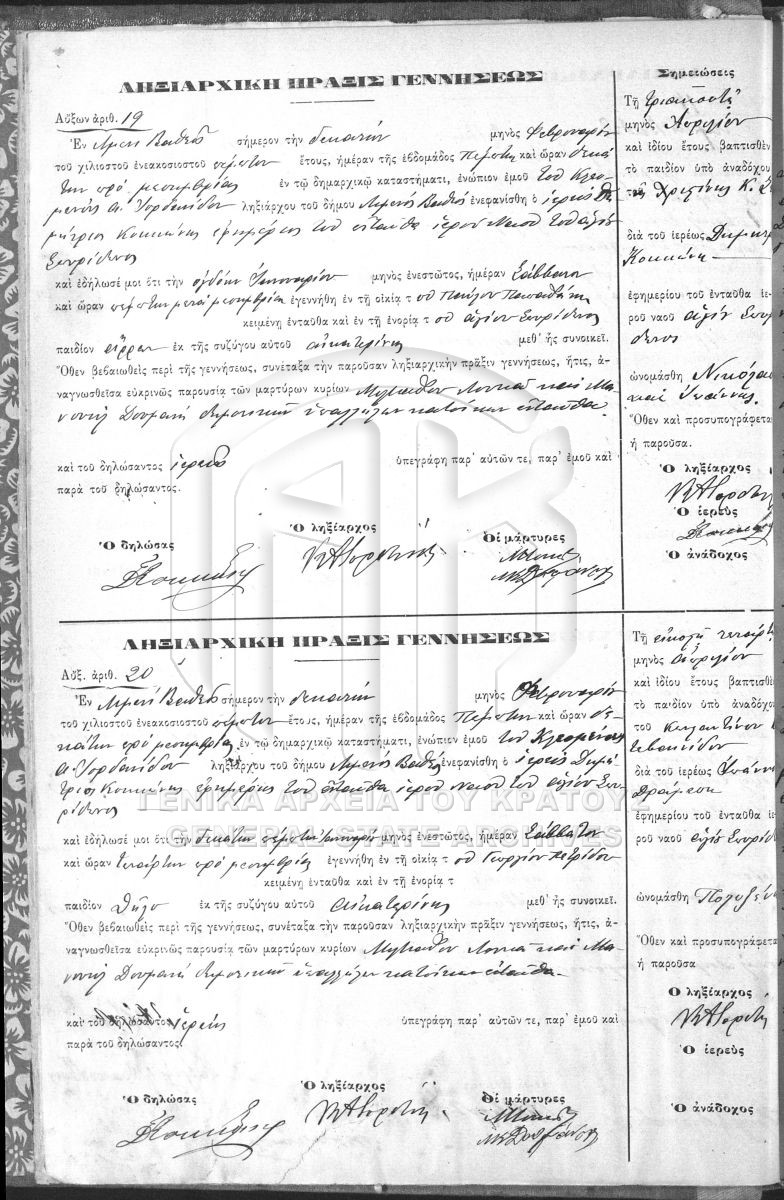 ΛΗΞΙΑΡΧΙΚΗ ΠΡΑΞΙΣ ΓΕΝΝΗΣΕΩΣ
Αὔξων ἀριθ. 19
Ἐν Λιμένι Βαθέος σήμερον τὴν δεκάτην μηνὸς Φεβρουαρίου
τοῦ χιλιοστοῦ ἐνεακοσιοστοῦ πέμπτου ἔτους, ἡμέραν τῆς ἑβδομάδος Πέμπτην καὶ ὥραν δεκά
την πρὸ μεσημβρίας ἐν τῷ δημαρχικῷ καταστήματι, ἐνώπιον ἐμοῦ τοῦ Κλεο
μένους Ἰορδανίδου ληξιάρχου τοῦ δήμου Λιμένος Βαθέος ἐνεφανίσθη ὁ ἱερεὺς Δη
μήτριος Κοκκώνης ἐφημέριος τοῦ ἐνταῦθα ἱεροῦ Ναοῦ τοῦ ἁγίου
Σπυρίδωνος
καὶ ἐδήλωσέ μοι ὅτι τὴν ὀγδόην Ἰανουαρίου μηνὸς ἐνεστῶτος, ἡμέραν Σάββατον
καὶ ὥραν πέμπτην μετὰ μεσημβρίαν ἐγεννήθη ἐν τῇ οἰκίᾳ τοῦ Παύλου
κειμένῃ ἐνταῦθα καὶ ἐν τῇ ἐνορίᾳ τοῦ ἁγίου Σπυρίδωνος
παιδίον ἄρρεν ἐκ τῆς συζύγου αὐτοῦ Αἰκατερίνης μεθ' ἧς συνοικεῖ.
Ὅθεν βεβαιωθεὶς περὶ τῆς γεννήσεως, συνέταξα τὴν παροῦσαν ληξιαρχικὴν πρᾶξιν γεννήσεως, ἥτις, ἀ-
ναγνωσθεῖσα εὐκρινῶς παρουσίᾳ τῶν μαρτύρων κυρίων Μιλτιάδου Λουκᾶ καὶ Μα
νουὴλ δημοτικῶν ὑπαλλήλων κατοίκων ἐνταῦθα
καὶ τοῦ δηλώσαντος ἱερέως ὑπεγράφη παρ' αὐτῶν τε, παρ' ἐμοῦ καὶ
παρὰ τοῦ δηλώσαντος.
Ὁ δηλώσας Ὁ ληξίαρχος Οἱ μάρτυρες
Σημειώσεις
Τῇ τριακοστῇ
μηνὸς Ἀπριλίου
καὶ ἰδίου ἔτους βαπτισθὲν
τὸ παιδίον ὑπὸ ἀναδόχου
τῆς Χριστίνης Κ.
διὰ τοῦ ἱερέως Δημητρ
Κοκκώνη
ἐφημερίου τοῦ ἐνταῦθα ἱε-
ροῦ ναοῦ ἁγίου Σπυρί
δωνος
ὠνομάσθη Νικόλαος
καὶ Ἰωάννης
Ὅθεν καὶ προσυπογράφεται
ἡ παροῦσα.
Ὁ ληξίαρχος
Ὁ ἱερεὺς
Ὁ ἀνάδοχος
ΛΗΞΙΑΡΧΙΚΗ ΠΡΑΞΙΣ ΓΕΝΝΗΣΕΩΣ
Αὔξ. ἀριθ. 20
Ἐν Λιμένι Βαθέος σήμερον τὴν δεκάτην μηνὸς Φεβρουαρίου
τοῦ χιλιοστοῦ ἐνεακοσιοστοῦ πέμπτου ἔτους, ἡμέραν τῆς ἑβδομάδος Πέμπτην καὶ ὥραν δε-
κάτην πρὸ μεσημβρίας ἐν τῷ δημαρχικῷ καταστήματι, ἐνώπιον ἐμοῦ τοῦ Κλεομένους
Ἰορδανίδου ληξιάρχου τοῦ δήμου Λιμένος Βαθέος ἐνεφανίσθη ὁ ἱερεὺς Δημή
τριος Κοκκώνης ἐφημέριος τοῦ ἐνταῦθα ἱεροῦ ναοῦ τοῦ ἁγίου Σπυ
ρίδωνος
ΓΕΝΙΚΑ ΑΡΧΕΙΑ ΤΟΥ ΚΡΑΤΟΥΣ
GENERAL STATE ARCHIVES
καὶ ἐδήλωσέ μοι ὅτι τὴν δεκάτην πέμπτην Ἰανουαρίου μηνὸς ἐνεστῶτος, ἡμέραν Σάββατον
καὶ ὥραν τετάρτην πρὸ μεσημβρίας ἐγεννήθη ἐν τῇ οἰκίᾳ τοῦ Γεωργίου Πετρίδου
κειμένῃ ἐνταῦθα καὶ ἐν τῇ ἐνορίᾳ τ
παιδίον θῆλυ ἐκ τῆς συζύγου αὐτοῦ Αἰκατερίνης μεθ' ἧς συνοικεῖ.
Ὅθεν βεβαιωθεὶς περὶ τῆς γεννήσεως, συνέταξα τὴν παροῦσαν ληξιαρχικὴν πρᾶξιν γεννήσεως, ἥτις, ἀ-
ναγνωσθεῖσα εὐκρινῶς παρουσίᾳ τῶν μαρτύρων κυρίων Μιλτιάδου Λουκᾶ καὶ Μα
νουὴλ δημοτικῶν ὑπαλλήλων κατοίκων ἐνταῦθα
καὶ τοῦ δηλώσαντος ἱερέως ὑπεγράφη παρ' αὐτῶν τε, παρ' ἐμοῦ καὶ
παρὰ τοῦ δηλώσαντος.
Ὁ δηλώσας Ὁ ληξίαρχος Οἱ μάρτυρες
Τῇ εἰκοστῇ τετάρτῃ
μηνὸς Ἀπριλίου
καὶ ἰδίου ἔτους βαπτισθὲν
τὸ παιδίον ὑπὸ ἀναδόχου
τοῦ Κωνσταντίνου
διὰ τοῦ ἱερέως Ἰωάννου
ἐφημερίου τοῦ ἐνταῦθα ἱε
ροῦ ναοῦ ἁγίου Σπυρίδ
ὠνομάσθη Πολυξένη
Ὅθεν καὶ προσυπογράφεται
ἡ παροῦσα
Ὁ ληξίαρχος
Ὁ ἱερεὺς
Ὁ ἀνάδοχος